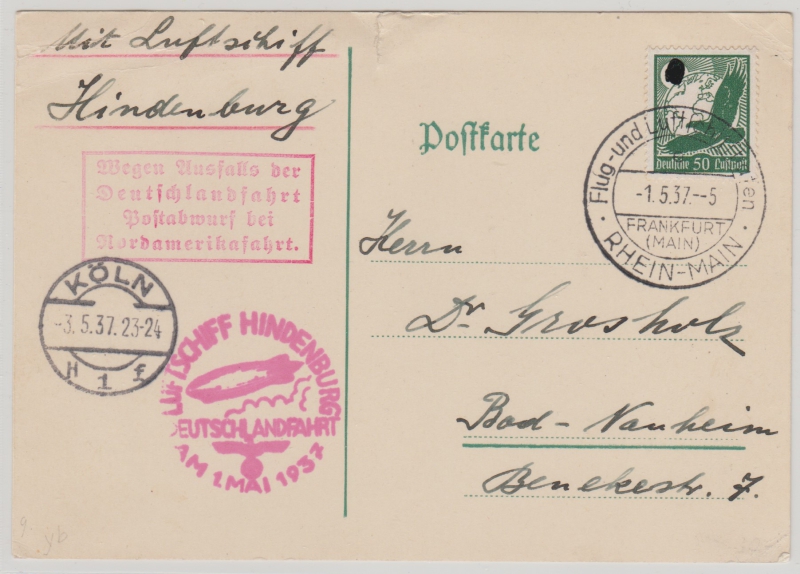 Mit Luftschiff
Hindenburg
Wegen Ausfalls der
Deutschlandfahrt
Postabwurf bei
Nordamerikafahrt.
KÖLN
-3.5.37.23-24
H 1 f
LUFTSCHIFF HINDENBURG
DEUTSCHLANDFAHRT
AM 1. MAI 1937
Postkarte
Deutsche 50 Luftpost
Flug-und Luft
-1.5.37.--5
FRANKFURT
(MAIN)
RHEIN-MAIN
Herrn
Dr. Grosholz
Bad-Nauheim
Benekestr. 7.